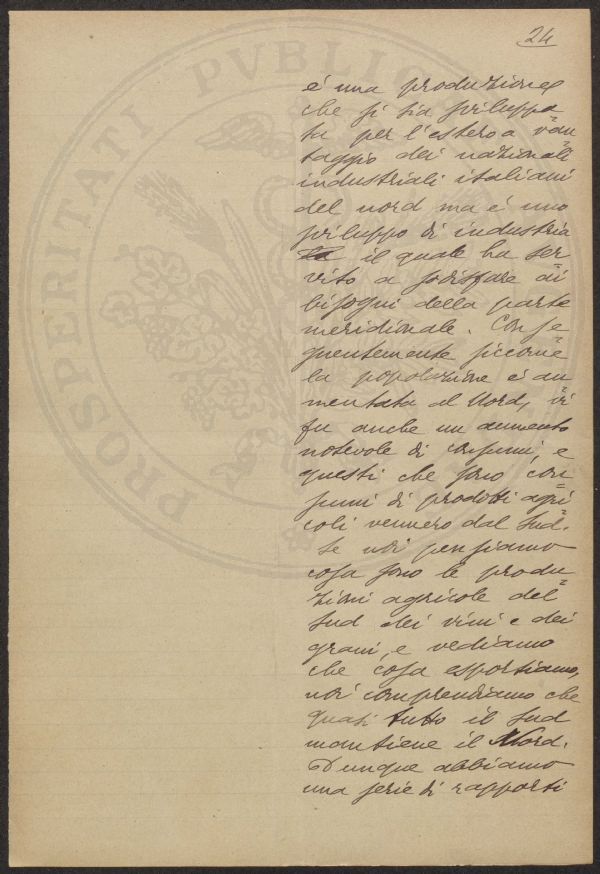 24
PROSPERITATI PVBLICA
é una produzione
che si sia sviluppa
ta per l'estero a van=
taggio dei nazionali
industriali italiani
del nord ma é uno
sviluppo di industria
il quale ha ser
vito a sodisfare ai
bisogni della parte
meridionale. Conse=
guentemente siccome
la popolazione é au=
mentata al Nord, vi
fu anche un aumento
notevole di consumi, e
questi che sono con=
sumi di prodotti agri=
coli vennero dal Sud.
Se noi pensiamo
cosa sono le produ=
zioni agricole del
Sud dei vini e dei
grani, e vediamo
che cosa esportiamo,
noi comprendiamo che
quasi tutto il Sud
mantiene il Nord.
Dunque abbiamo
una serie di rapporti